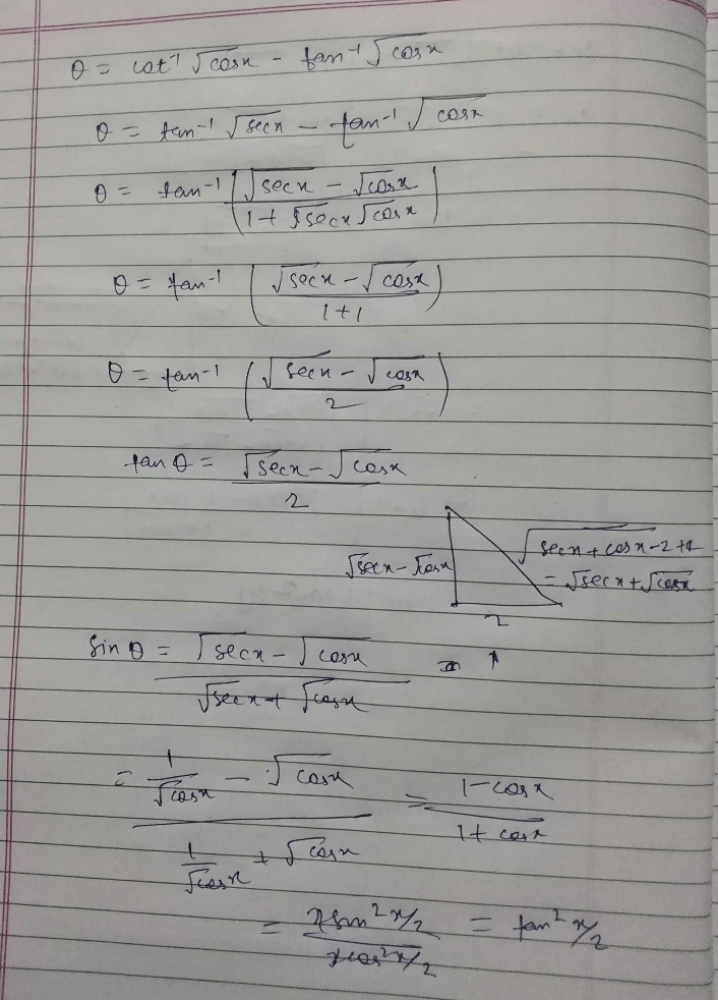 θ = cot⁻¹ √cosx - tan⁻¹ √cosx
θ = tan⁻¹ √secx - tan⁻¹ √cosx
θ = tan⁻¹ ( (√secx - √cosx) / (1 + √secx √cosx) )
θ = tan⁻¹ ( (√secx - √cosx) / (1+1) )
θ = tan⁻¹ ( (√secx - √cosx) / 2 )
tan θ = (√secx - √cosx) / 2
√(secx + cosx - 2 + 4)
√secx - √cosx
= √secx + √cosx
2
Sin θ = (√secx - √cosx) / (√secx + √cosx)
= (1/√cosx - √cosx) / (1/√cosx + √cosx) = (1 - cosx) / (1 + cosx)
= (2sin² x/2) / (2cos² x/2) = tan² x/2